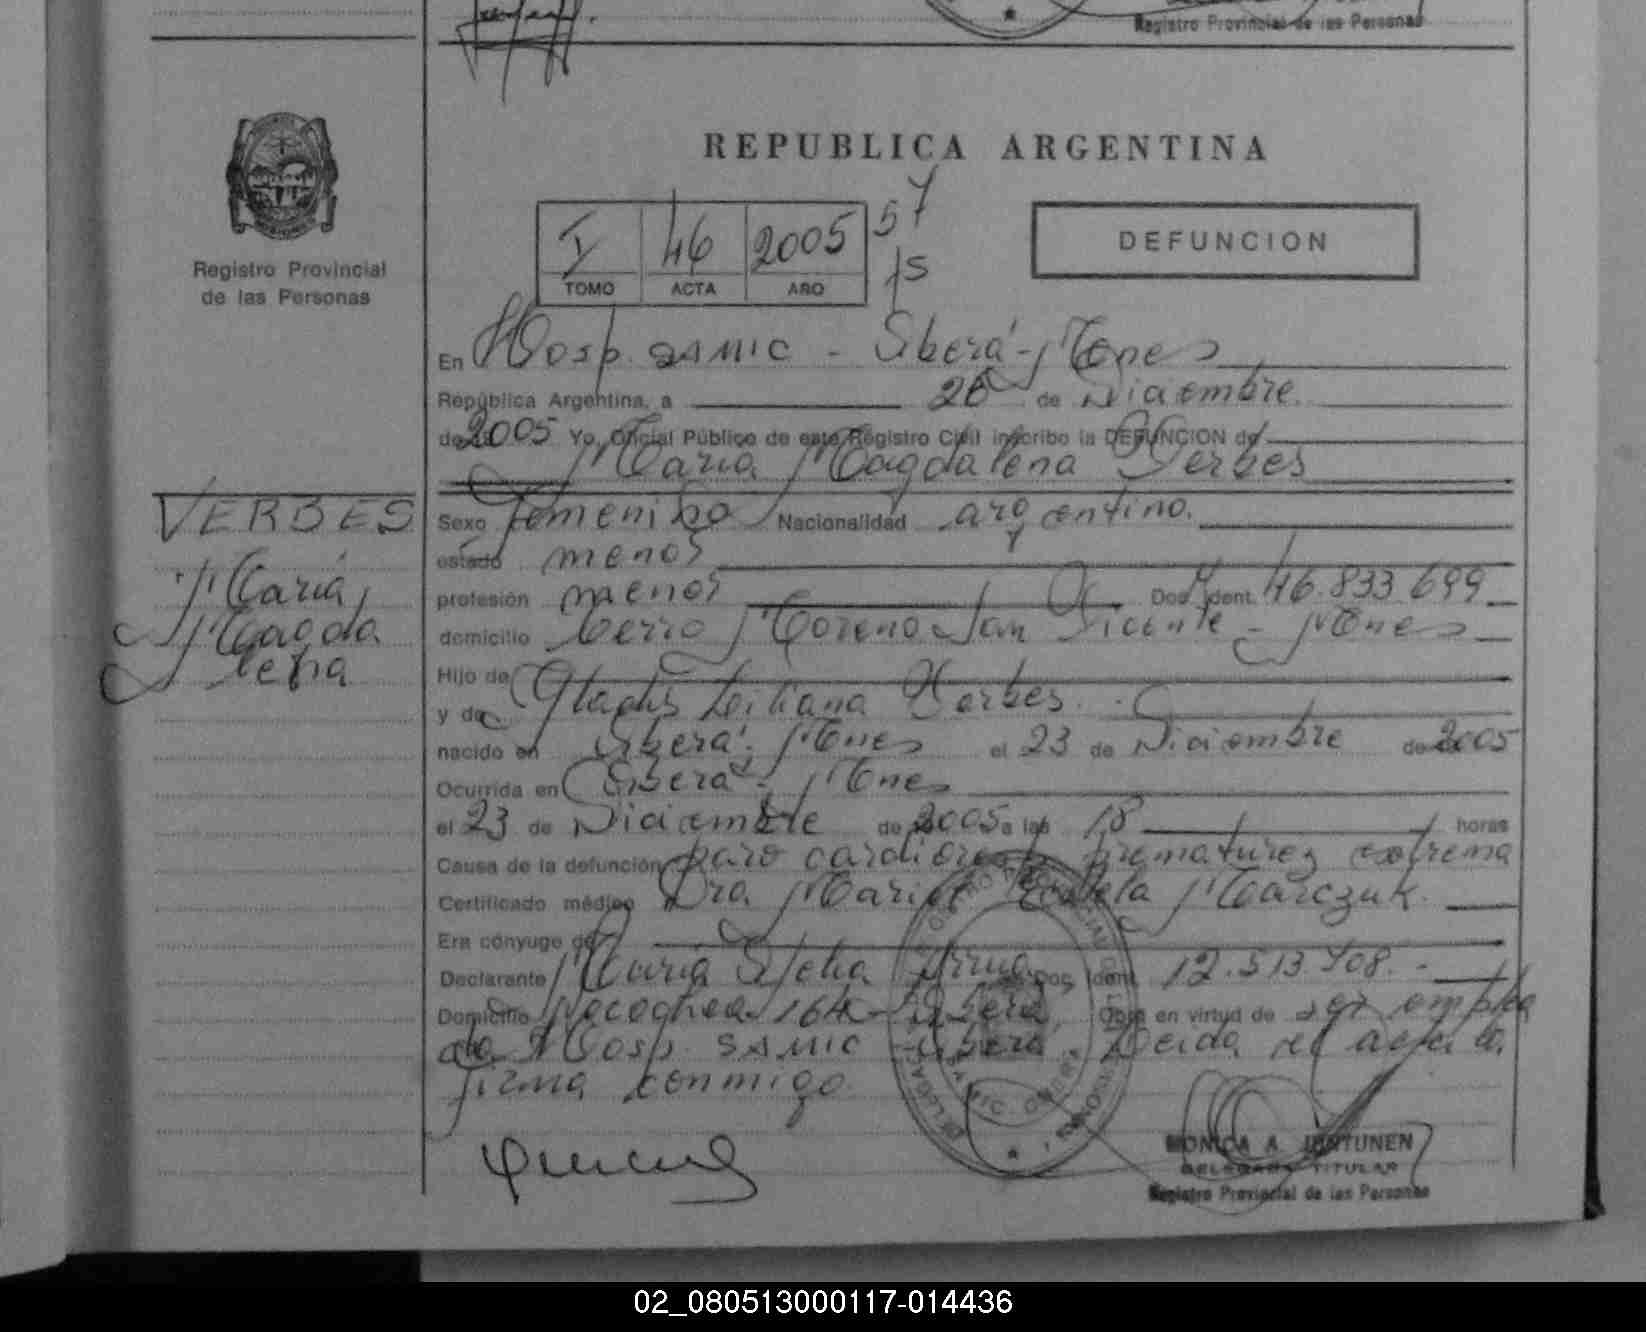 Registro Provincial de las Personas
REPUBLICA ARGENTINA
Registro Provincial
de las Personas
I 46 2005 57
TOMO ACTA AÑO 15
DEFUNCION
En Hosp. SAMIC - Oberá - Mnes
República Argentina, a 26 de Diciembre
de 2005 Yo, Oficial Público de este Registro Civil inscribo la DEFUNCION de
María Magdalena Verbes
VERBES
María
Magda
lena
Sexo femenino Nacionalidad argentina.
estado menor
profesión menor Doc. Ident. 46.833.699
domicilio Cerro Moreno San Vicente - Mnes
Hijo de
y de Gladis Liliana Verbes.
nacido en Oberá - Mnes el 23 de Diciembre de 2005
Ocurrida en Oberá - Mnes
el 23 de Diciembre de 2005 a las 18 horas
Causa de la defunción paro cardioresp. prematurez extrema
Certificado médico Dra. María Marczuk.
Era cónyuge de
Declarante María Stella Doc. Ident. 12.513.708.-
Domicilio Necochea 164 - Oberá Obra en virtud de ser emplea
da Hosp. SAMIC - Oberá Leída el acta la
firma conmigo.
MONICA A. JUNTUNEN
DELEGADA TITULAR
Registro Provincial de las Personas
02_080513000117-014436